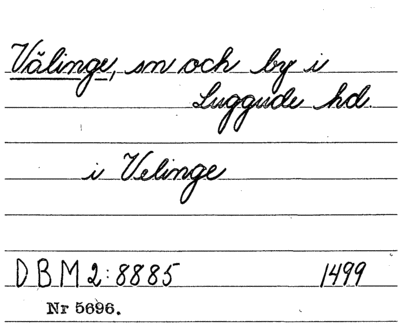 Välinge, sn och by i
Luggude hd.
i Velinge
DBM 2:8885 1499
Nr 5696.